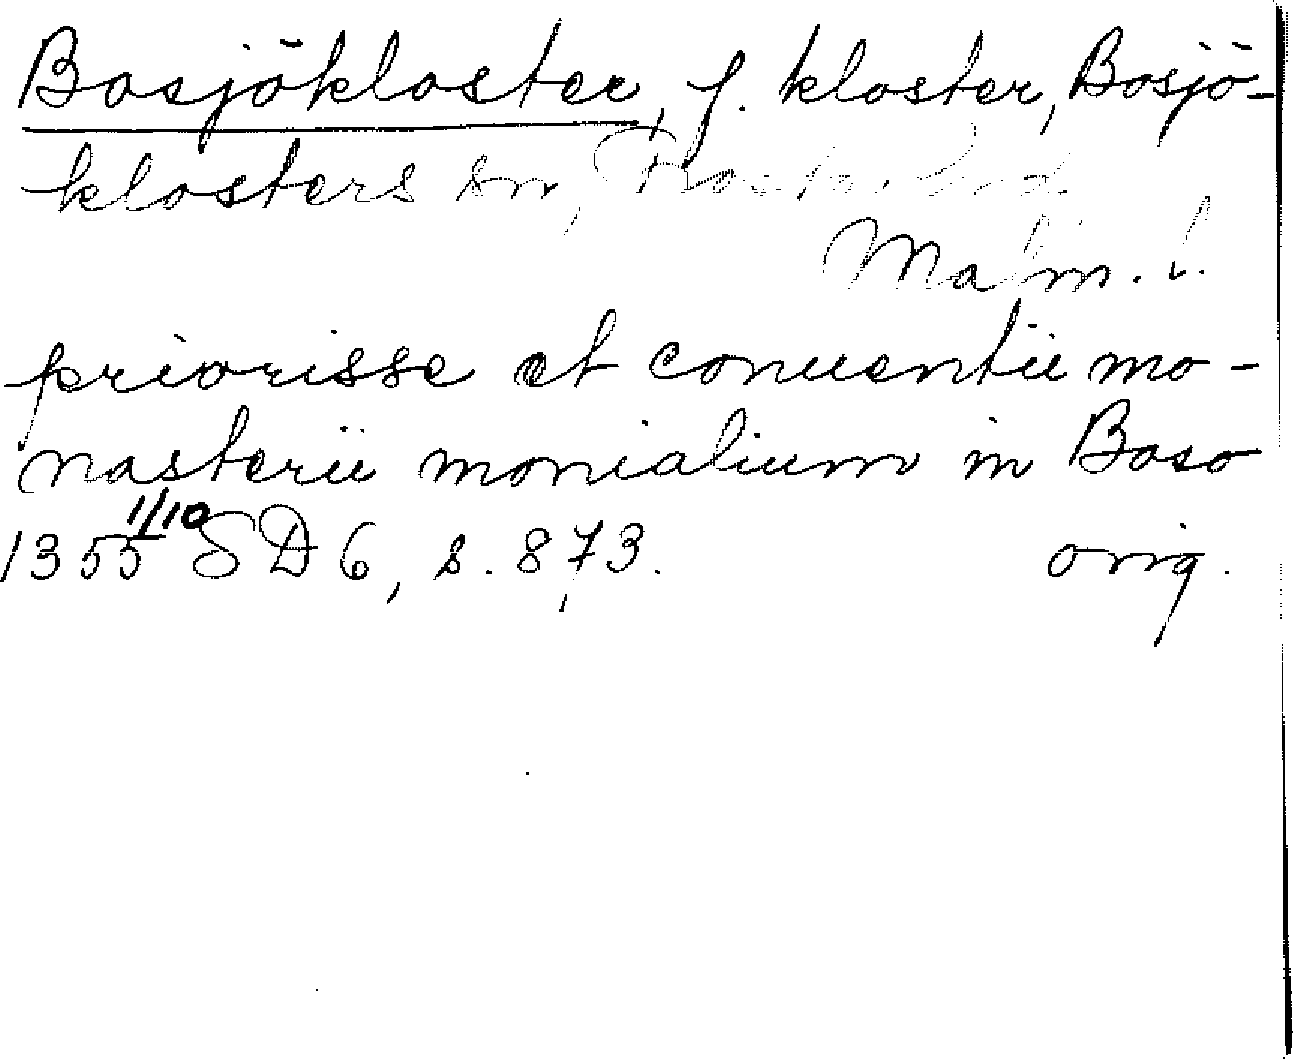 Bosjökloster, f. kloster, Bosjö-
klosters sn, Frosta hd
Malm. l.
priorisse et conuentui mo-
nasterii monialium in Boso
1355 1/10 SD 6, s. 873. orig.